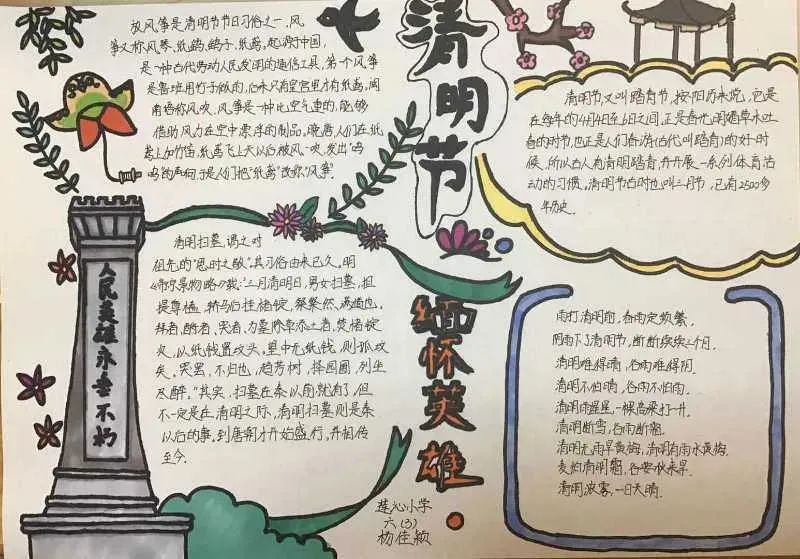 清明节
缅怀英雄
放风筝是清明节节日习俗之一，风
筝又称风琴，纸鹞，鹞子，纸鸢，起源于中国，
是一种古代劳动人民发明的通信工具，第一个风筝
是鲁班用竹子做的，后来只有皇宫里才有纸鸢，闽
南语称风吹。风筝是一种比空气重的，能够
借助风力在空中漂浮的制品。晚唐，人们在纸
鸢上加竹笛，纸鸢飞上天以后被风一吹，发出"呜
呜"的声响，于是人们把"纸鸢"改称"风筝"。
清明节，又叫踏青节，按阳历来说，它是
在每年的4月4日至6日之间，正是春光明媚草木吐
春的时节，也正是人们春游(古代叫踏青)的好时
候，所以古人有清明踏青，并开展一系列体育活
动的习惯。清明节古时也叫三月节，已有2500多
年历史。
清明扫墓，谓之对
祖先的"思时之敬"。其习俗由来已久。明
《帝京景物略》载："三月清明日，男女扫墓，担
提尊榼，轿马后挂楮锭，粲粲然，满道也，
拜者，酹者，哭者，为墓除草添土者，焚楮锭
次，以纸钱置坟头。望中无纸钱，则孤坟
矣。哭罢，不归也，趋芳树，择园圃，列坐
尽醉。"其实，扫墓在秦以前就有了，但
不一定是在清明之际，清明扫墓则是秦
以后的事。到唐朝才开始盛行，并相传
至今。
人民英雄永垂不朽
雨打清明前，春雨定频繁。
阴雨下了清明节，断断续续三个月。
清明难得晴，谷雨难得阴。
清明不怕晴，谷雨不怕雨。
清明雨星星，一棵高粱打一升。
清明断雪，谷雨断霜。
清明无雨旱黄梅，清明有雨水黄梅。
麦怕清明霜，谷要秋来旱。
清明有雾，一日天晴。
莲心小学
六(3)
杨佳颖